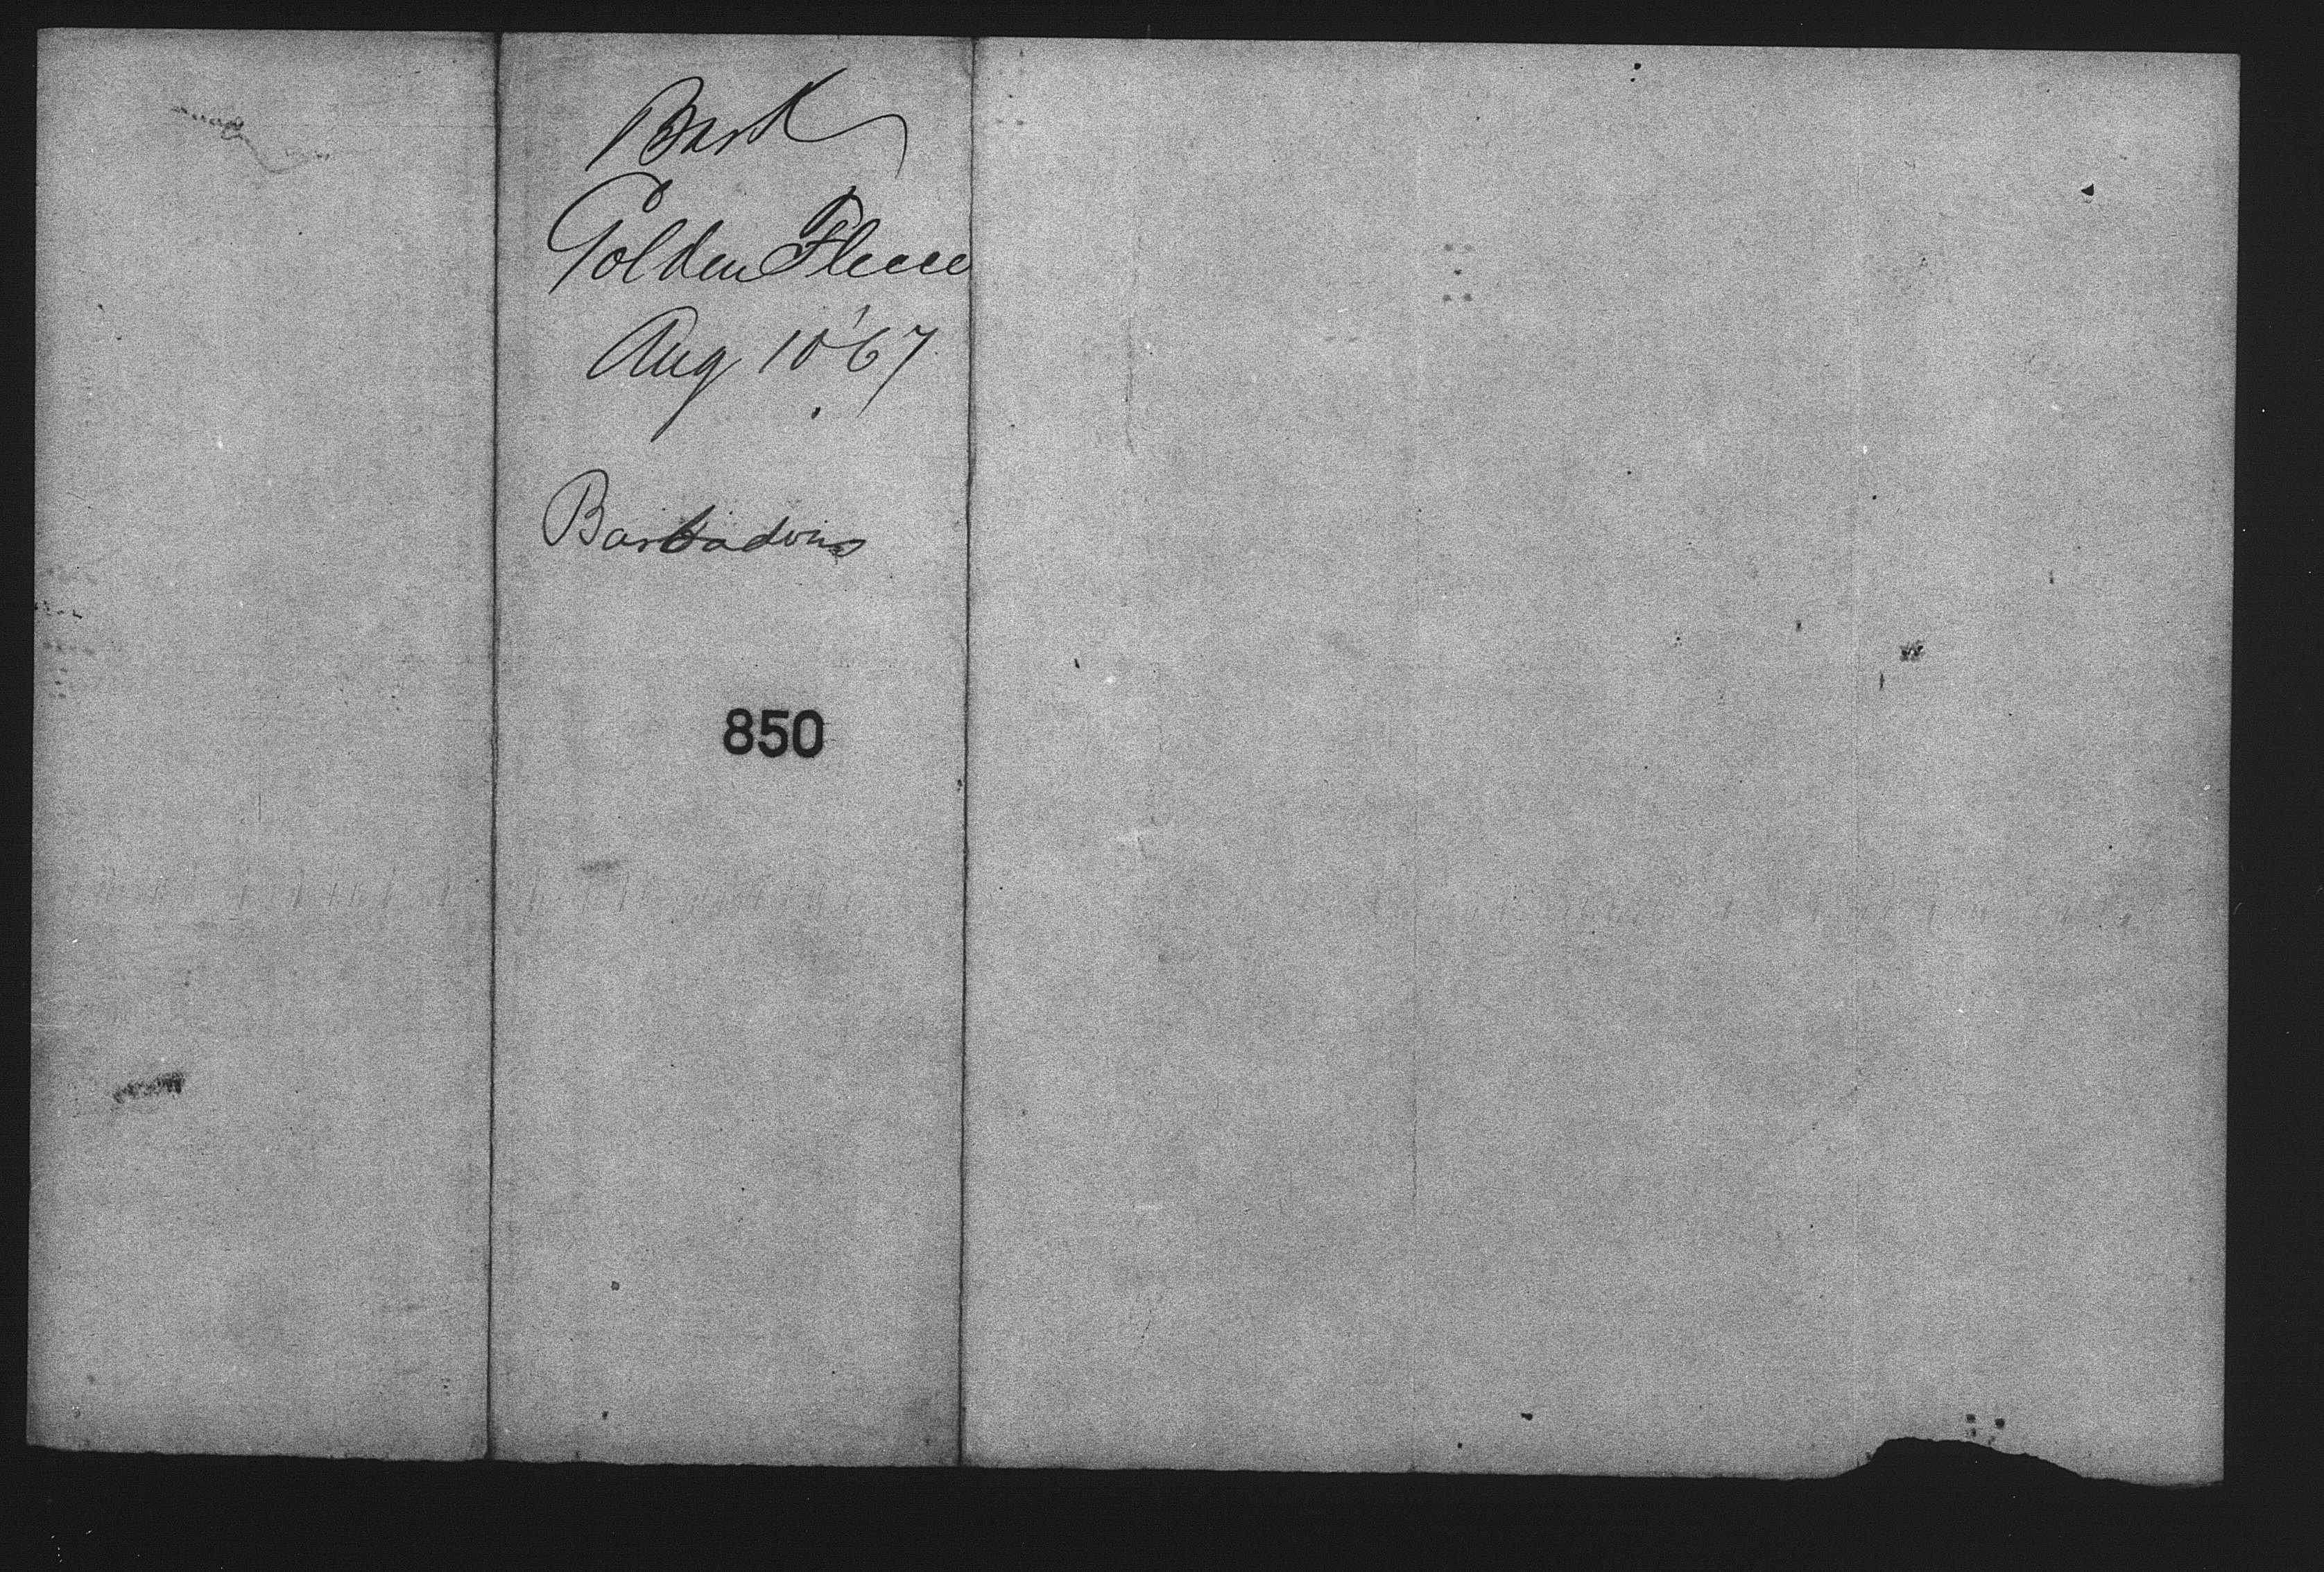 Bark
Golden Fleece
Aug 10 '67
Barbadoes
850